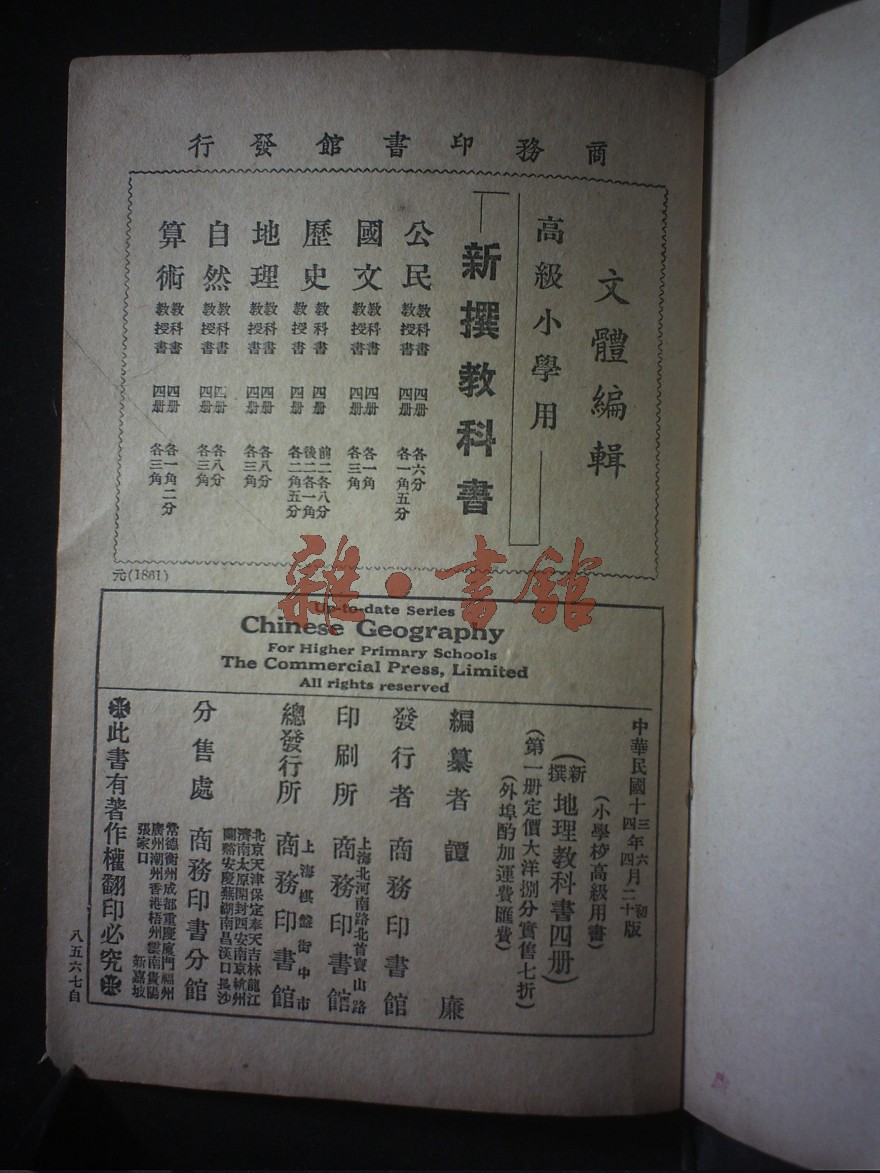 商務印書館發行
文體編輯
高級小學用
新撰教科書
公民 教科書 四册 各六分
教授書 四册 各一角五分
國文 教科書 四册 各一角
教授書 四册 各三角
歷史 教科書 四册 前二各八分 後二各一角
教授書 四册 各二角五分
地理 教科書 四册 各八分
教授書 四册 各三角
自然 教科書 四册 各八分
教授書 四册 各三角
算術 教科書 四册 各一角二分
教授書 四册 各三角
元(1861)
雜·書館
Up-to-date Series
Chinese Geography
For Higher Primary Schools
The Commercial Press, Limited
All rights reserved
中華民國十三年六月初版
四年四月二十版
(小學校高級用書)
(新撰地理教科書四册)
(第一册定價大洋捌分實售七折)
(外埠酌加運費匯費)
編纂者 譚廉
發行者 商務印書館
印刷所 上海北河南路北首寶山路 商務印書館
總發行所 上海棋盤街中市 商務印書館
分售處 商務印書分館
北京天津保定奉天吉林龍江
濟南太原開封西安南京杭州
蘭谿安慶蕪湖南昌漢口長沙
常德衡州成都重慶廈門福州
廣州潮州香港梧州雲南貴陽
張家口 新嘉坡
此書有著作權翻印必究
八五六七自